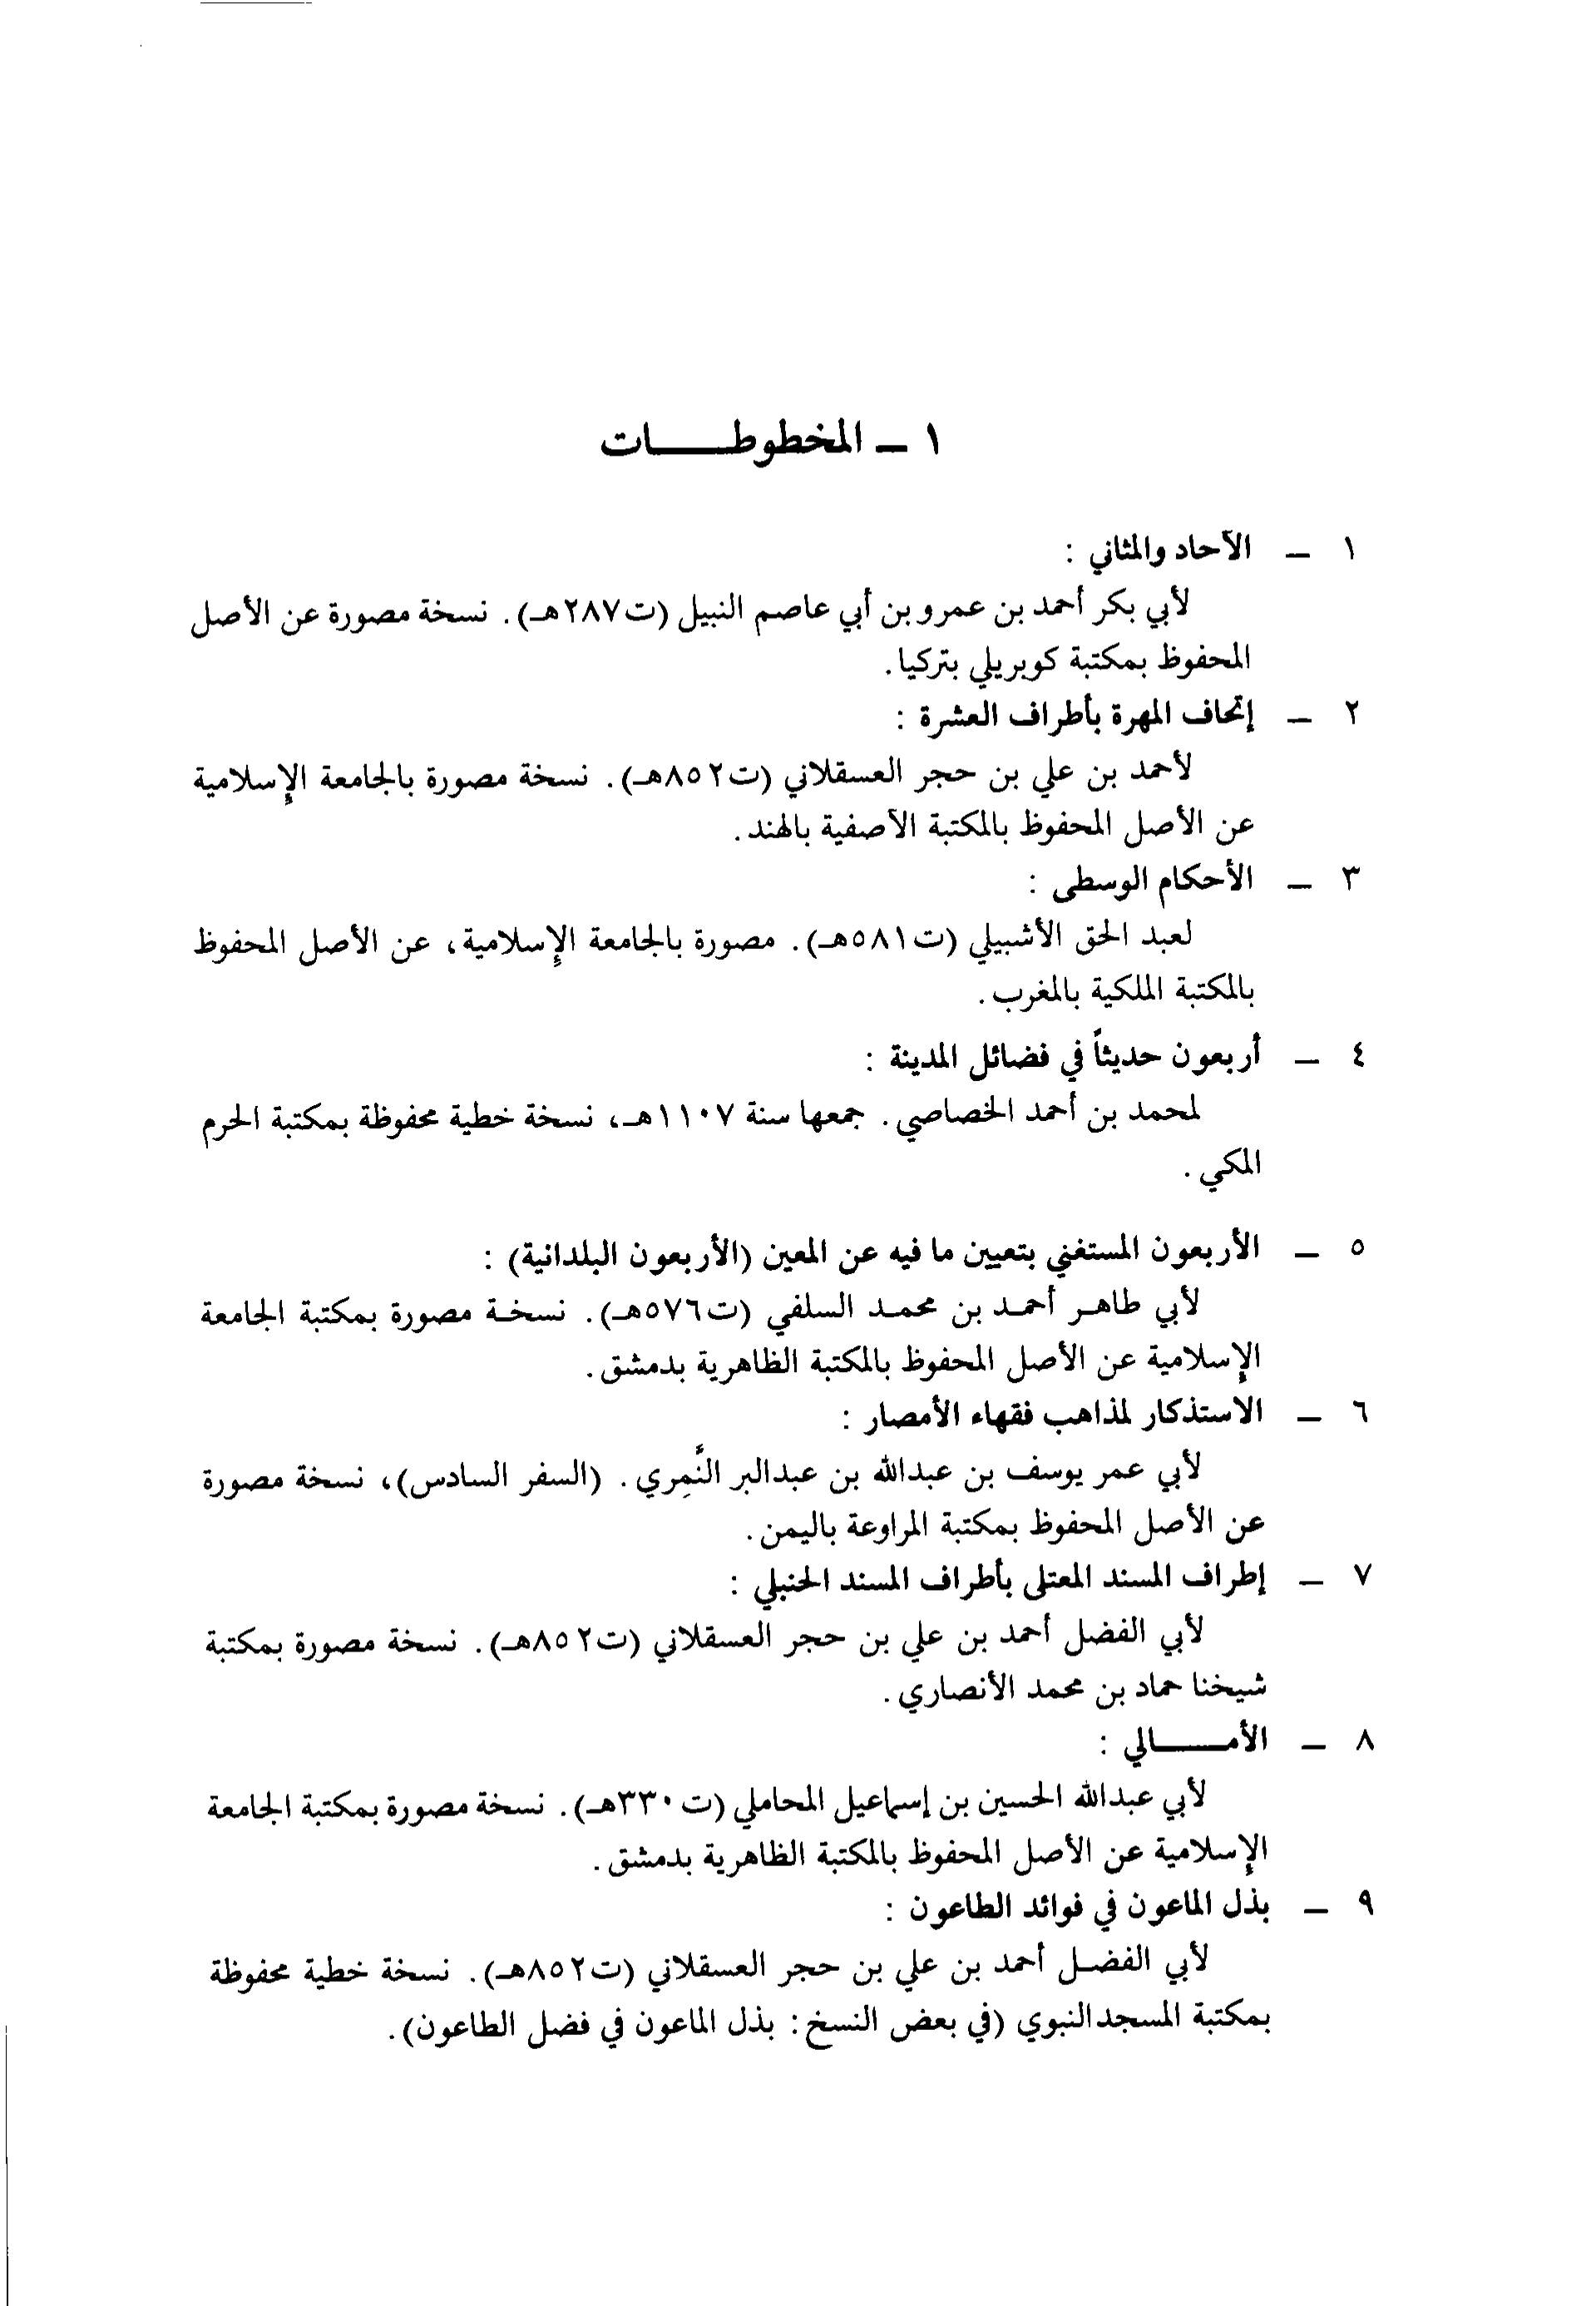 ١ - المخطوطــــــات
١ - الآحاد والمثاني :
لأبي بكر أحمد بن عمرو بن أبي عاصم النبيل (ت٢٨٧هـ). نسخة مصورة عن الأصل
المحفوظ بمكتبة كوبريلي بتركيا.
٢ - إتحاف المهرة بأطراف العشرة :
لأحمد بن علي بن حجر العسقلاني (ت٨٥٢هـ). نسخة مصورة بالجامعة الإسلامية
عن الأصل المحفوظ بالمكتبة الآصفية بالهند.
٣ - الأحكام الوسطى :
لعبد الحق الأشبيلي (ت٥٨١هـ). مصورة بالجامعة الإسلامية، عن الأصل المحفوظ
بالمكتبة الملكية بالمغرب.
٤ - أربعون حديثاً في فضائل المدينة :
لمحمد بن أحمد الخصاصي. جمعها سنة ١١٠٧هـ، نسخة خطية محفوظة بمكتبة الحرم
المكي.
٥ - الأربعون المستغني بتعيين ما فيه عن المعين (الأربعون البلدانية) :
لأبي طاهـر أحمـد بن محمـد السلفي (ت٥٧٦هـ). نسخـة مصورة بمكتبة الجامعة
الإسلامية عن الأصل المحفوظ بالمكتبة الظاهرية بدمشق.
٦ - الاستذكار لمذاهب فقهاء الأمصار :
لأبي عمر يوسف بن عبدالله بن عبدالبر النَّمِري. (السفر السادس)، نسخة مصورة
عن الأصل المحفوظ بمكتبة المراوعة باليمن.
٧ - إطراف المسند المعتلى بأطراف المسند الحنبلي :
لأبي الفضل أحمد بن علي بن حجر العسقلاني (ت٨٥٢هـ). نسخة مصورة بمكتبة
شيخنا حماد بن محمد الأنصاري.
٨ - الأمـــــالي :
لأبي عبدالله الحسين بن إسماعيل المحاملي (ت٣٣٠هـ). نسخة مصورة بمكتبة الجامعة
الإسلامية عن الأصل المحفوظ بالمكتبة الظاهرية بدمشق.
٩ - بذل الماعون في فوائد الطاعون :
لأبي الفضـل أحمد بن علي بن حجر العسقلاني (ت٨٥٢هـ). نسخة خطية محفوظة
بمكتبة المسجد النبوي (في بعض النسخ : بذل الماعون في فضل الطاعون).